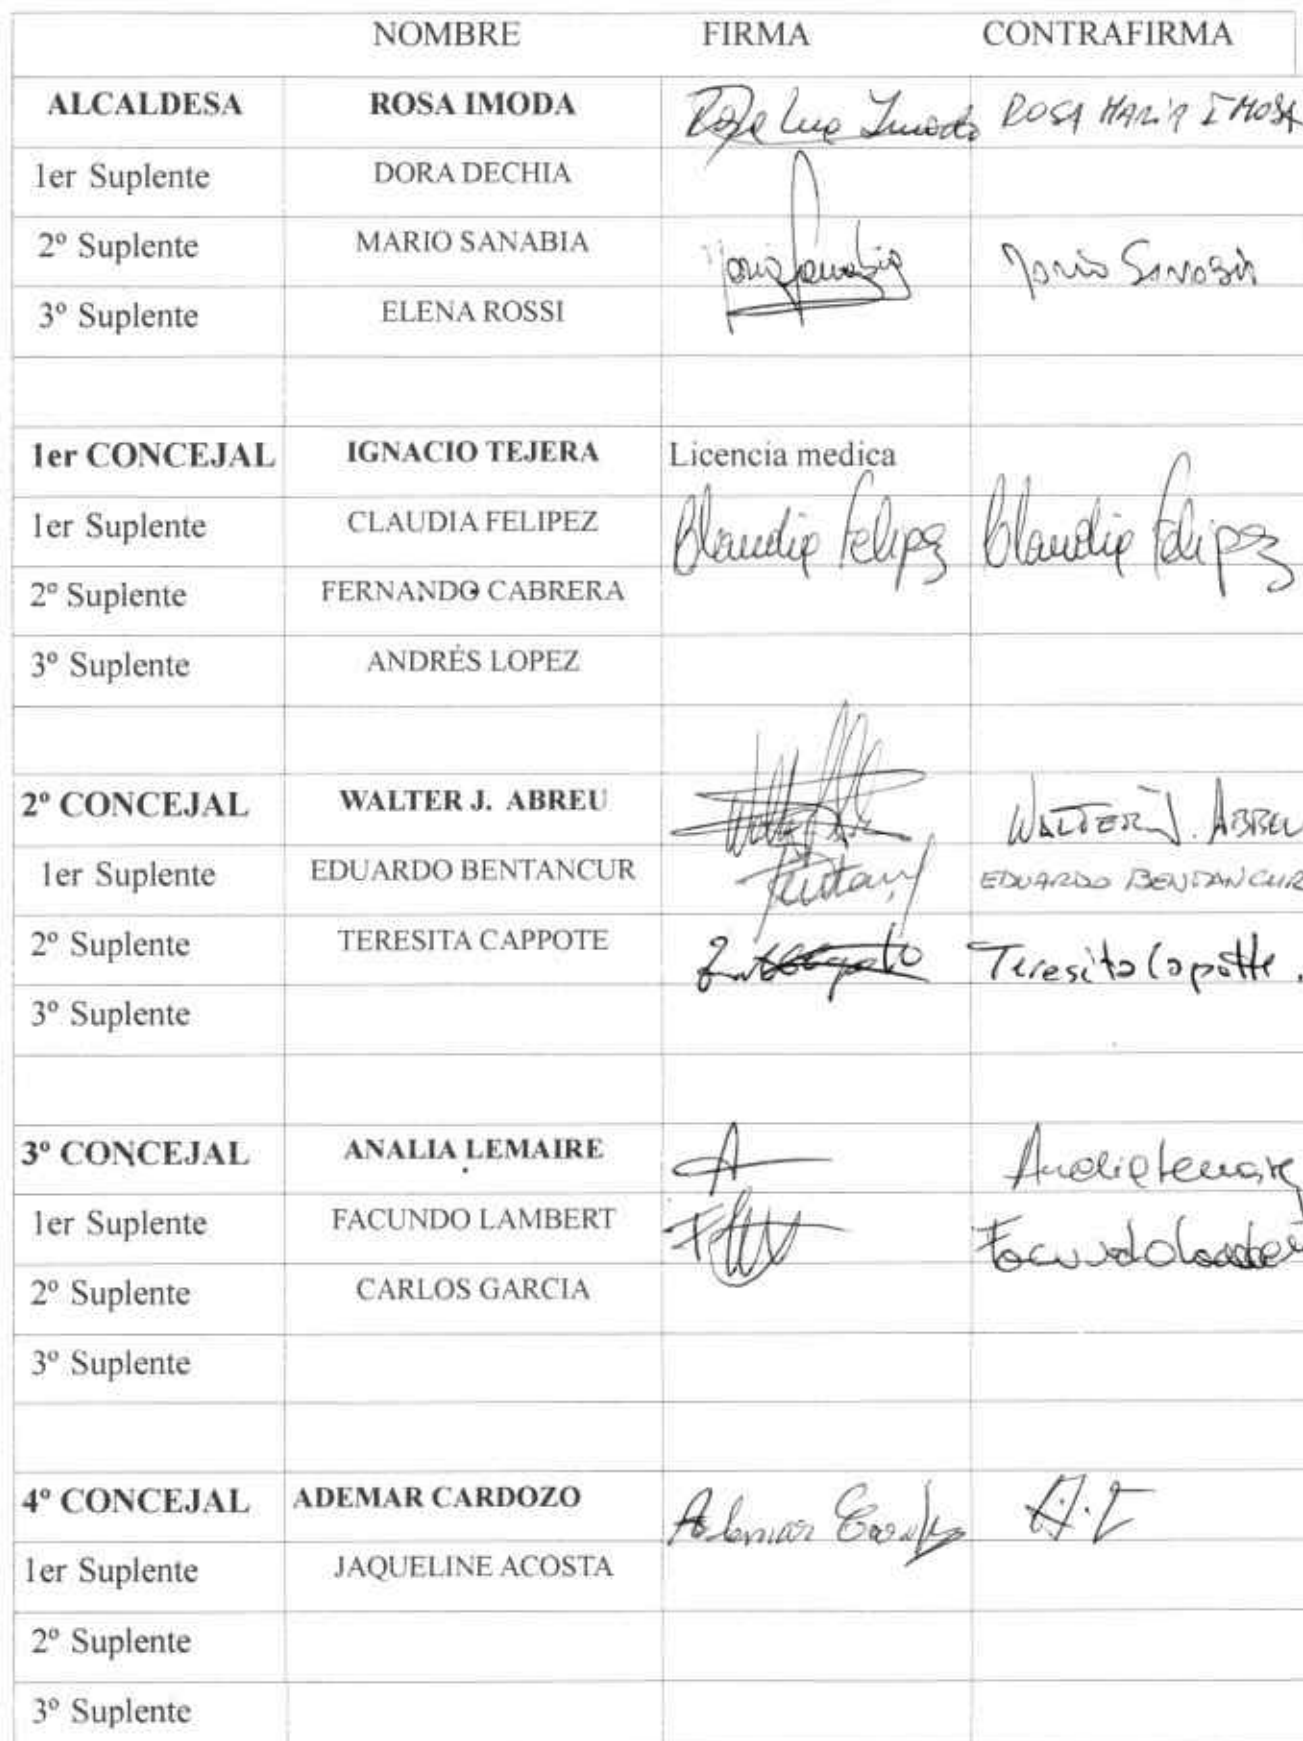 NOMBRE FIRMA CONTRAFIRMA
ALCALDESA ROSA IMODA ROSA MARIA IMODA
1er Suplente DORA DECHIA
2º Suplente MARIO SANABIA Mario Sanabia Mario Sanabia
3º Suplente ELENA ROSSI
1er CONCEJAL IGNACIO TEJERA Licencia medica
1er Suplente CLAUDIA FELIPEZ Claudia Felipez Claudia Felipez
2º Suplente FERNANDO CABRERA
3º Suplente ANDRÉS LOPEZ
2º CONCEJAL WALTER J. ABREU WALTER J. ABREU
1er Suplente EDUARDO BENTANCUR EDUARDO BENTANCUR
2º Suplente TERESITA CAPPOTE Teresita Capotte.
3º Suplente
3º CONCEJAL ANALIA LEMAIRE A Analia Lemaire
1er Suplente FACUNDO LAMBERT Facundo Lambert
2º Suplente CARLOS GARCIA
3º Suplente
4º CONCEJAL ADEMAR CARDOZO Ademar Cardozo
1er Suplente JAQUELINE ACOSTA
2º Suplente
3º Suplente